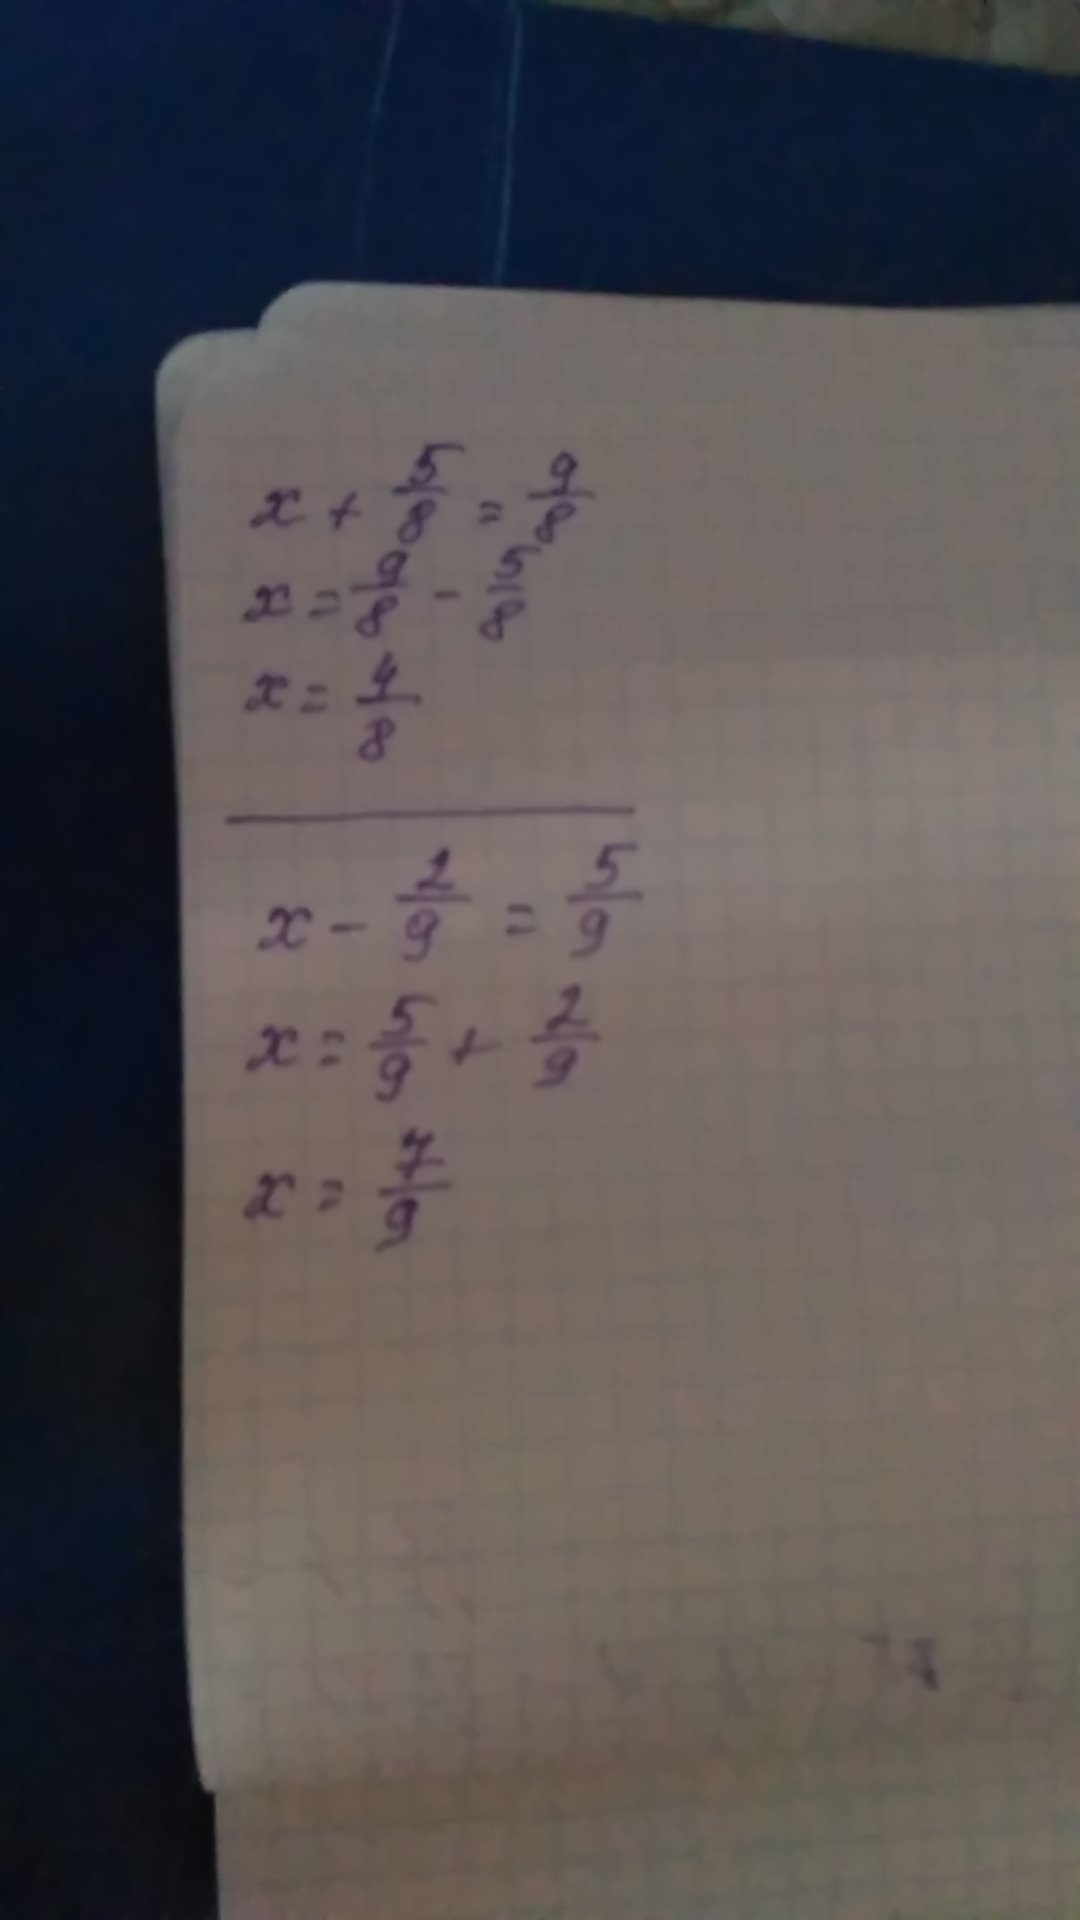 x + 5/8 = 9/8
x = 9/8 - 5/8
x = 4/8
x - 2/9 = 5/9
x = 5/9 + 2/9
x = 7/9